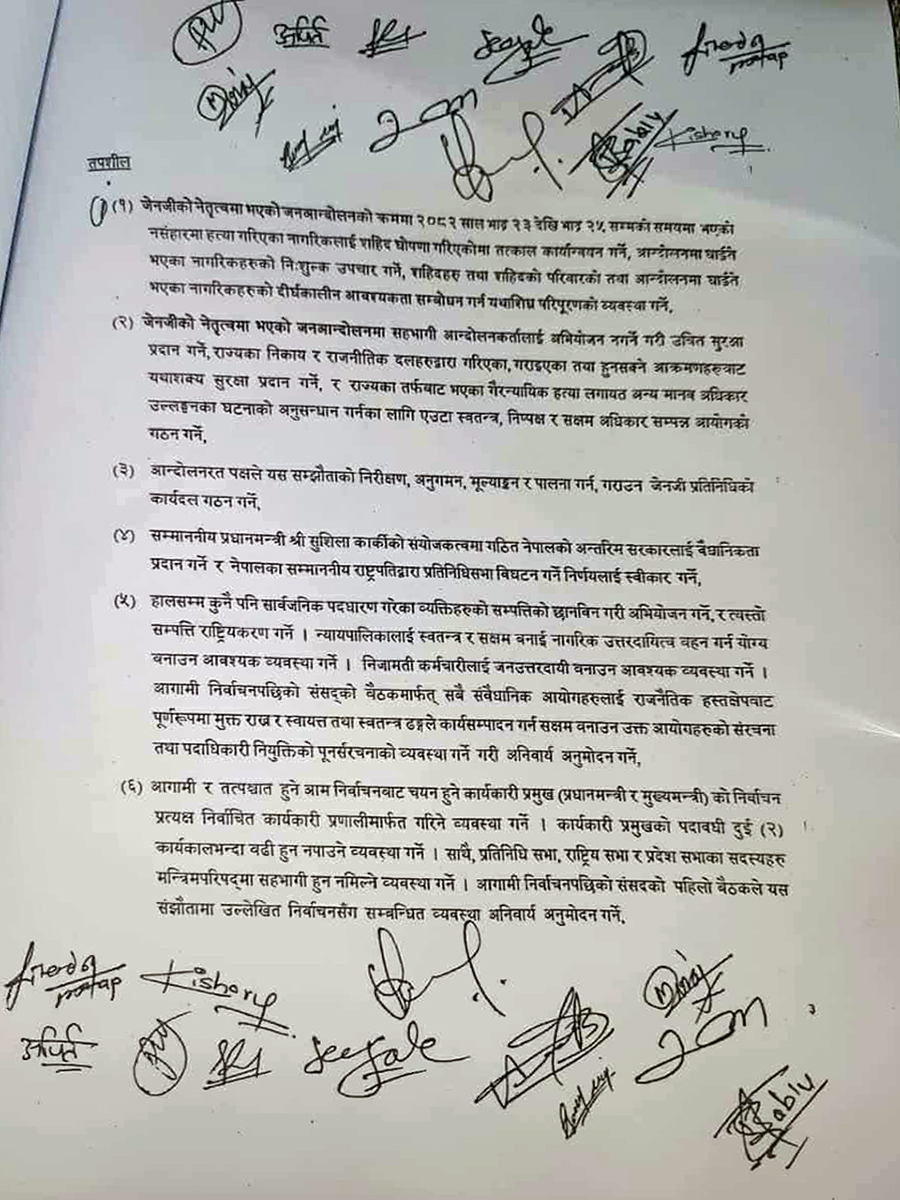 अर्पित
Jeerja
Pratap
Manoj
Bablu
Kishory
तपशील
(१) जेनजीको नेतृत्वमा भएको जनआन्दोलनको क्रममा २०८२ साल भाद्र २३ देखि भाद्र २५ सम्मको समयमा भएको
नसंहारमा हत्या गरिएका नागरिकलाई शहिद घोषणा गरिएकोमा तत्काल कार्यान्वयन गर्ने, आन्दोलनमा घाईते
भएका नागरिकहरुको निःशुल्क उपचार गर्ने, शहिदहरु तथा शहिदको परिवारको तथा आन्दोलनमा घाईते
भएका नागरिकहरुको दीर्घकालीन आवश्यकता सम्बोधन गर्न यथाशिघ्र परिपूरणको व्यवस्था गर्ने,
(२) जेनजीको नेतृत्वमा भएको जनआन्दोलनमा सहभागी आन्दोलनकर्तालाई अभियोजन नगर्ने गरी उचित सुरक्षा
प्रदान गर्ने, राज्यका निकाय र राजनीतिक दलहरुद्वारा गरिएका, गराइएका तथा हुनसक्ने आक्रमणहरुबाट
यथाशक्य सुरक्षा प्रदान गर्ने, र राज्यका तर्फबाट भएका गैरन्यायिक हत्या लगायत अन्य मानव अधिकार
उल्लङ्घनका घटनाको अनुसन्धान गर्नका लागि एउटा स्वतन्त्र, निष्पक्ष र सक्षम अधिकार सम्पन्न आयोगको
गठन गर्ने,
(३) आन्दोलनरत पक्षले यस सम्झौताको निरीक्षण, अनुगमन, मूल्याङ्कन र पालना गर्न, गराउन जेनजी प्रतिनिधिको
कार्यदल गठन गर्ने,
(४) सम्माननीय प्रधानमन्त्री श्री सुशिला कार्कीको संयोजकत्वमा गठित नेपालको अन्तरिम सरकारलाई वैधानिकता
प्रदान गर्ने र नेपालका सम्माननीय राष्ट्रपतिद्वारा प्रतिनिधिसभा विघटन गर्ने निर्णयलाई स्वीकार गर्ने,
(५) हालसम्म कुनै पनि सार्वजनिक पदधारण गरेका व्यक्तिहरुको सम्पत्तिको छानविन गरी अभियोजन गर्ने, र त्यस्तो
सम्पत्ति राष्ट्रियकरण गर्ने । न्यायपालिकालाई स्वतन्त्र र सक्षम बनाई नागरिक उत्तरदायित्व वहन गर्न योग्य
बनाउन आवश्यक व्यवस्था गर्ने । निजामती कर्मचारीलाई जनउत्तरदायी बनाउन आवश्यक व्यवस्था गर्ने ।
आगामी निर्वाचनपछिको संसद्को बैठकमार्फत् सबै संवैधानिक आयोगहरुलाई राजनैतिक हस्तक्षेपबाट
पूर्णरूपमा मुक्त राख्न र स्वायत्त तथा स्वतन्त्र ढङ्गले कार्यसम्पादन गर्न सक्षम बनाउन उक्त आयोगहरुको संरचना
तथा पदाधिकारी नियुक्तिको पूनर्संरचनाको व्यवस्था गर्ने गरी अनिवार्य अनुमोदन गर्ने,
(६) आगामी र तत्पश्चात हुने आम निर्वाचनबाट चयन हुने कार्यकारी प्रमुख (प्रधानमन्त्री र मुख्यमन्त्री) को निर्वाचन
प्रत्यक्ष निर्वाचित कार्यकारी प्रणालीमार्फत गरिने व्यवस्था गर्ने । कार्यकारी प्रमुखको पदावधी दुई (२)
कार्यकालभन्दा वढी हुन नपाउने व्यवस्था गर्ने । साथै, प्रतिनिधि सभा, राष्ट्रिय सभा र प्रदेश सभाका सदस्यहरु
मन्त्रिमपरिषद्मा सहभागी हुन नमिल्ने व्यवस्था गर्ने । आगामी निर्वाचनपछिको संसदको पहिलो बैठकले यस
संझौतामा उल्लेखित निर्वाचनसँग सम्बन्धित व्यवस्था अनिवार्य अनुमोदन गर्ने,
Kishory
Manoj
अर्पित
Bablu